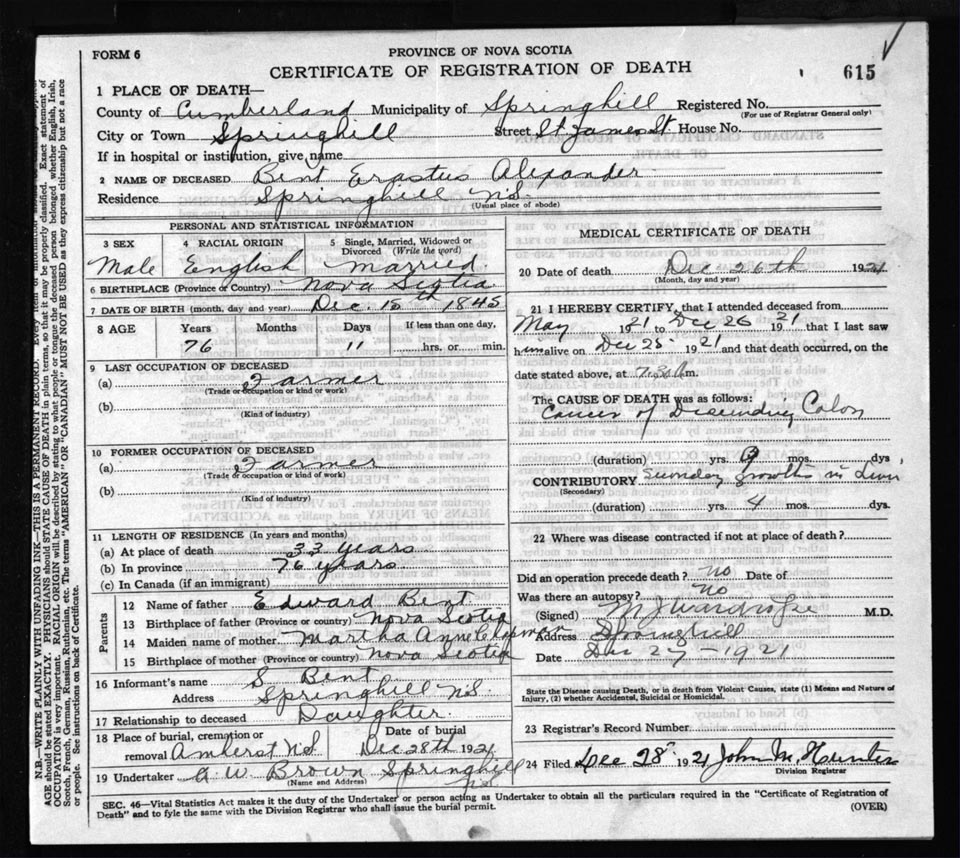 FORM 6
PROVINCE OF NOVA SCOTIA
CERTIFICATE OF REGISTRATION OF DEATH
615
1 PLACE OF DEATH—
County of Cumberland Municipality of Springhill Registered No.
(For use of Registrar General only)
City or Town Springhill Street St. James St House No.
If in hospital or institution, give name
2 NAME OF DECEASED. Bent Erastus Alexander
Residence Springhill N.S.
(Usual place of abode)
PERSONAL AND STATISTICAL INFORMATION
3 SEX
4 RACIAL ORIGIN
5 Single, Married, Widowed or Divorced (Write the word)
Male English Married.
6 BIRTHPLACE (Province or Country) Nova Scotia
7 DATE OF BIRTH (month, day and year) Dec. 15th 1845
8 AGE Years Months Days If less than one day,
76 11 hrs. or min.
9 LAST OCCUPATION OF DECEASED
(a) Farmer
(Trade or occupation or kind of work)
(b)
(Kind of industry)
10 FORMER OCCUPATION OF DECEASED
(a) Farmer
(Trade or occupation or kind of work)
(b)
(Kind of industry)
11 LENGTH OF RESIDENCE (In years and months)
(a) At place of death 33 years
(b) In province 76 years
(c) In Canada (if an immigrant)
Parents
12 Name of father Edward Bent
13 Birthplace of father (Province or country) Nova Scotia
14 Maiden name of mother. Martha Anne Chapman
15 Birthplace of mother (Province or country) Nova Scotia
16 Informant's name S. Bent
Address Springhill N.S.
17 Relationship to deceased Daughter.
18 Place of burial, cremation or Date of burial
removal Amherst N.S. Dec 28th 1921
19 Undertaker A. W. Brown Springhill N.S.
(Name and Address)
MEDICAL CERTIFICATE OF DEATH
20 Date of death Dec 26th 1921
(Month, day and year)
21 I HEREBY CERTIFY, that I attended deceased from
May 1921 to Dec 26 1921 that I last saw
him alive on Dec 25 1921 and that death occurred, on the
date stated above, at m.
The CAUSE OF DEATH was as follows:
Cancer of Descending Colon
(duration) yrs. 9 mos. dys
CONTRIBUTORY growths in Liver
(Secondary)
(duration) yrs. 4 mos. dys.
22 Where was disease contracted if not at place of death?
Did an operation precede death? no Date of
Was there an autopsy? no
(Signed) M.D.
Address Springhill
Date Dec 27 - 1921
State the Disease causing Death, or in death from Violent Causes, state (1) Means and Nature of
Injury, (2) whether Accidental, Suicidal or Homicidal.
23 Registrar's Record Number
24 Filed Dec 28 1921 John M. Hunter
Division Registrar
SEC. 46—Vital Statistics Act makes it the duty of the Undertaker or person acting as Undertaker to obtain all the particulars required in the "Certificate of Registration of
Death" and to fyle the same with the Division Registrar who shall issue the burial permit.
(OVER)
N.B.—WRITE PLAINLY WITH UNFADING INK—THIS IS A PERMANENT RECORD. Every item of information
AGE should be stated EXACTLY. PHYSICIANS should STATE CAUSE OF DEATH in plain terms, so that it may be properly classified. Exact statement of
OCCUPATION is very important. RACIAL ORIGIN will be described by stating to what people or tongue the deceased person belonged whether English, Irish,
Scotch, French, German, Russian, Ruthenian, etc. The terms "AMERICAN" OR "CANADIAN" MUST NOT BE USED as they express citizenship but not a race
or people. See instructions on back of Certificate.